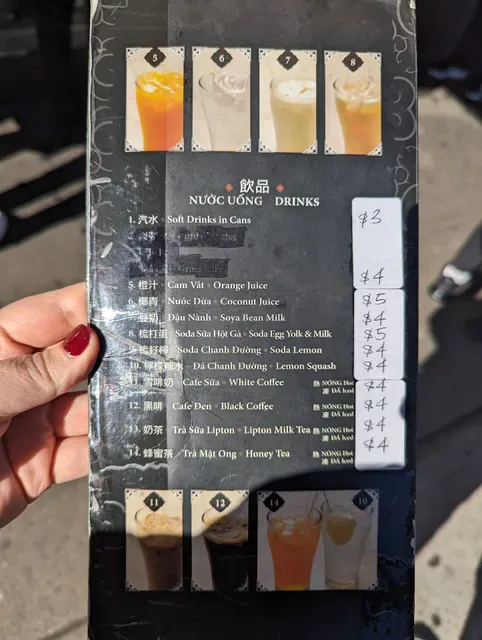 5 6 7 8
飲品
NƯỚC UỐNG DRINKS
1. 汽水 Soft Drinks in Cans $3
$4
5. 橙汁 Cam Vắt Orange Juice $5
6. 椰青 Nước Dừa Coconut Juice $4
7. 豆奶 Đậu Nành Soya Bean Milk $5
8. 梳打蛋 Soda Sữa Hột Gà Soda Egg Yolk & Milk $4
9. 梳打檸 Soda Chanh Đường Soda Lemon $4
10. 檸檬糖水 Đá Chanh Đường Lemon Squash $4
11. 雪啡奶 Cafe Sữa White Coffee 熱 NÓNG Hot 凍 ĐÁ Iced $4
12. 黑啡 Cafe Đen Black Coffee 熱 NÓNG Hot 凍 ĐÁ Iced $4
13. 奶茶 Trà Sữa Lipton Lipton Milk Tea 熱 NÓNG Hot 凍 ĐÁ Iced $4
14. 蜂蜜茶 Trà Mật Ong Honey Tea 熱 NÓNG Hot 凍 ĐÁ Iced
11 12 14 10